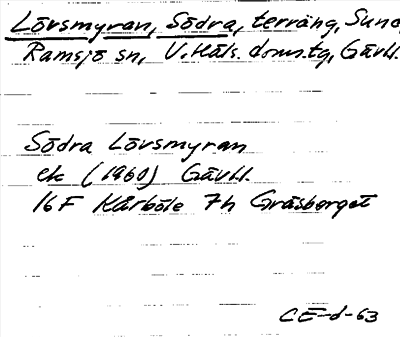 Lövsmyran, Södra, terräng, Sund
Ramsjö sn, V. Häls. doms.tg, Gävl.
Södra Lövsmyran
ek (1960) Gävl.
16 F Kårböle 7h Gräsberget
CE-d-63